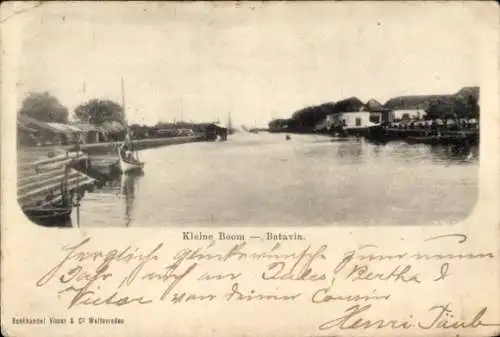 Kleine Boom — Batavia.
Herzliche Glückwünsche zum neuen
Jahr auf an Jules Bertha &
Victor von deinem Cousin
Henri Täub
Boekhandel Visser & Cº Weltevreden